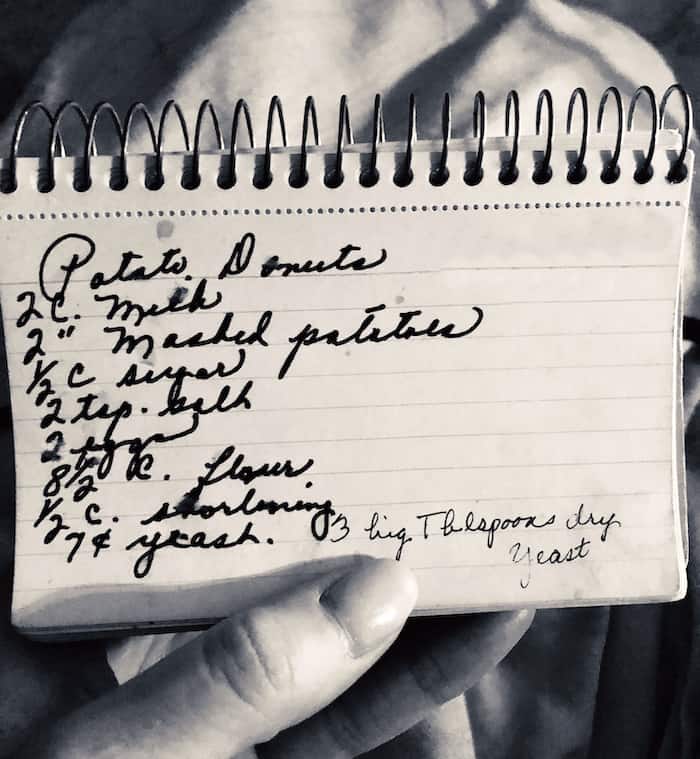 Potato Donuts
2 C. Milk
2 " Mashed potatoes
1/2 C sugar
2 tsp. salt
2 eggs
8 1/2 C. flour
1/2 C. shortening
7¢ yeast. 3 big Tblspoons dry
Yeast